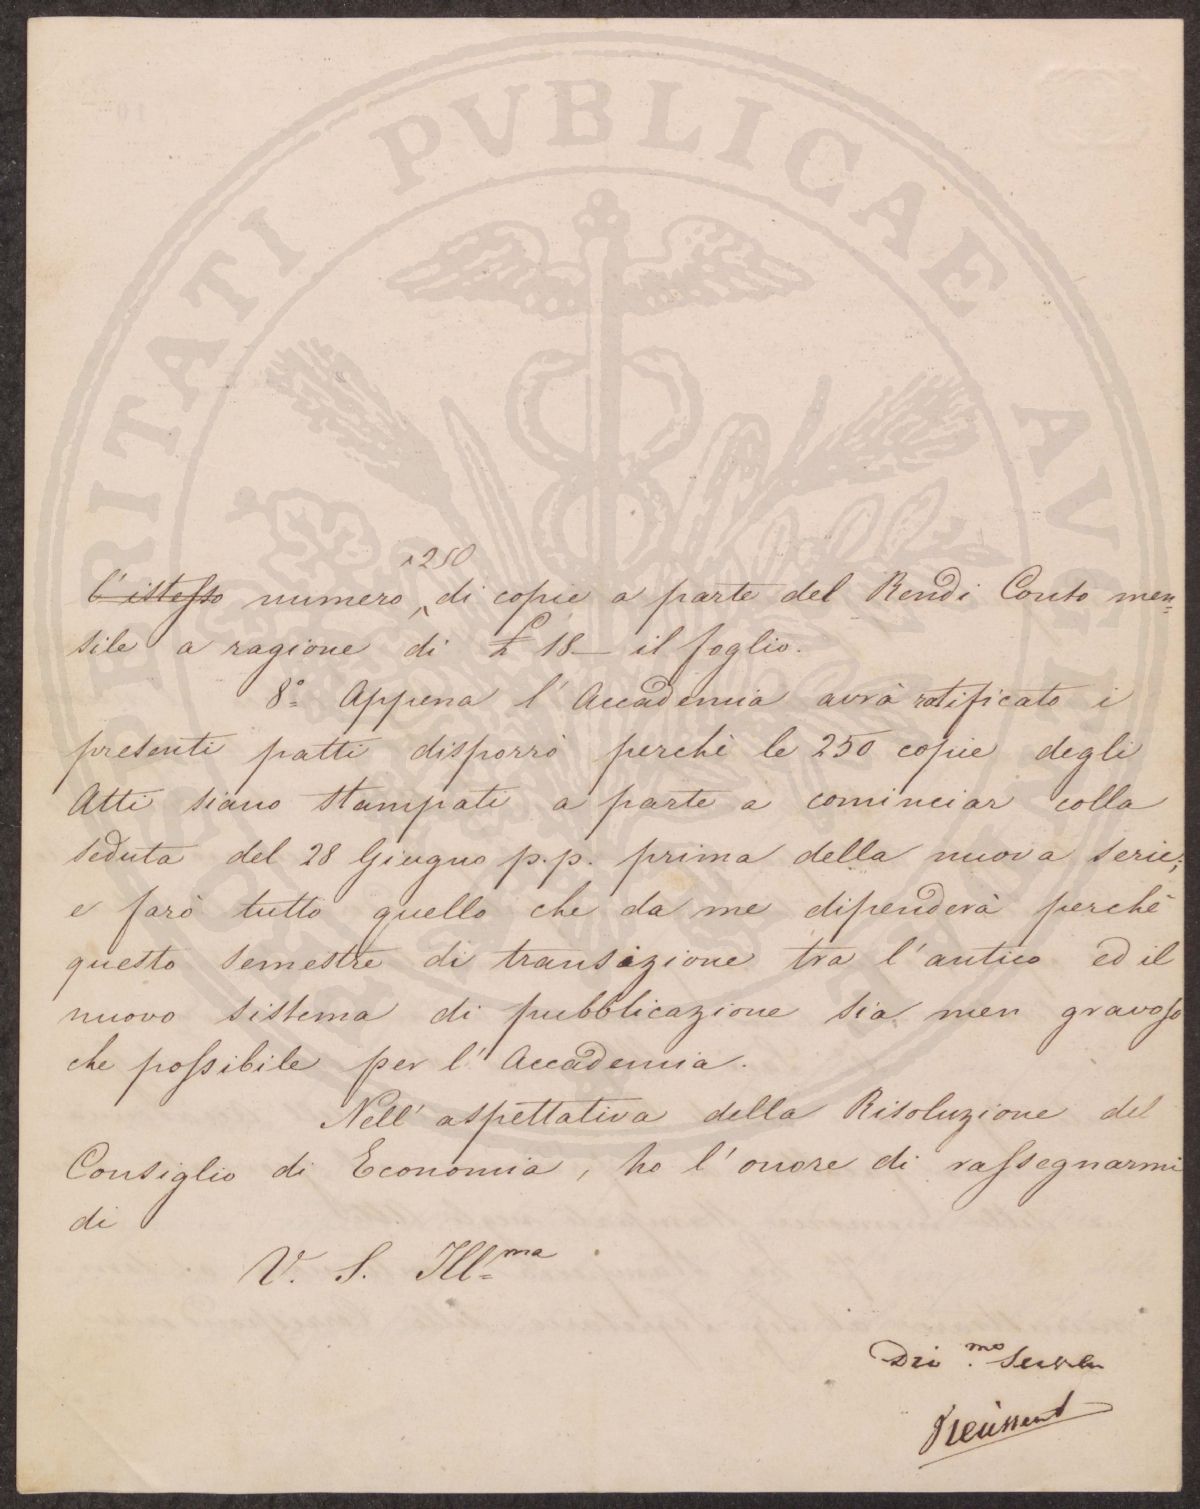 PROSPERITATI PVBLICAE AVGENDAE
250
l'istesso numero di copie a parte del Rendi Conto men=
sile a ragione di £ 18 — il foglio.
8.° Appena l'Accademia avrà ratificato i
presenti patti disporrò perchè le 250 copie degli
Atti siano stampati a parte a cominciar colla
seduta del 28 Giugno p.p. prima della nuova serie;
e farò tutto quello che da me dipenderà perchè
questo semestre di transizione tra l'antico ed il
nuovo sistema di pubblicazione sia men gravoso
che possibile per l'Accademia.
Nell'aspettativa della Risoluzione del
Consiglio di Economia, ho l'onore di rassegnarmi
di
V. S. Ill.ma